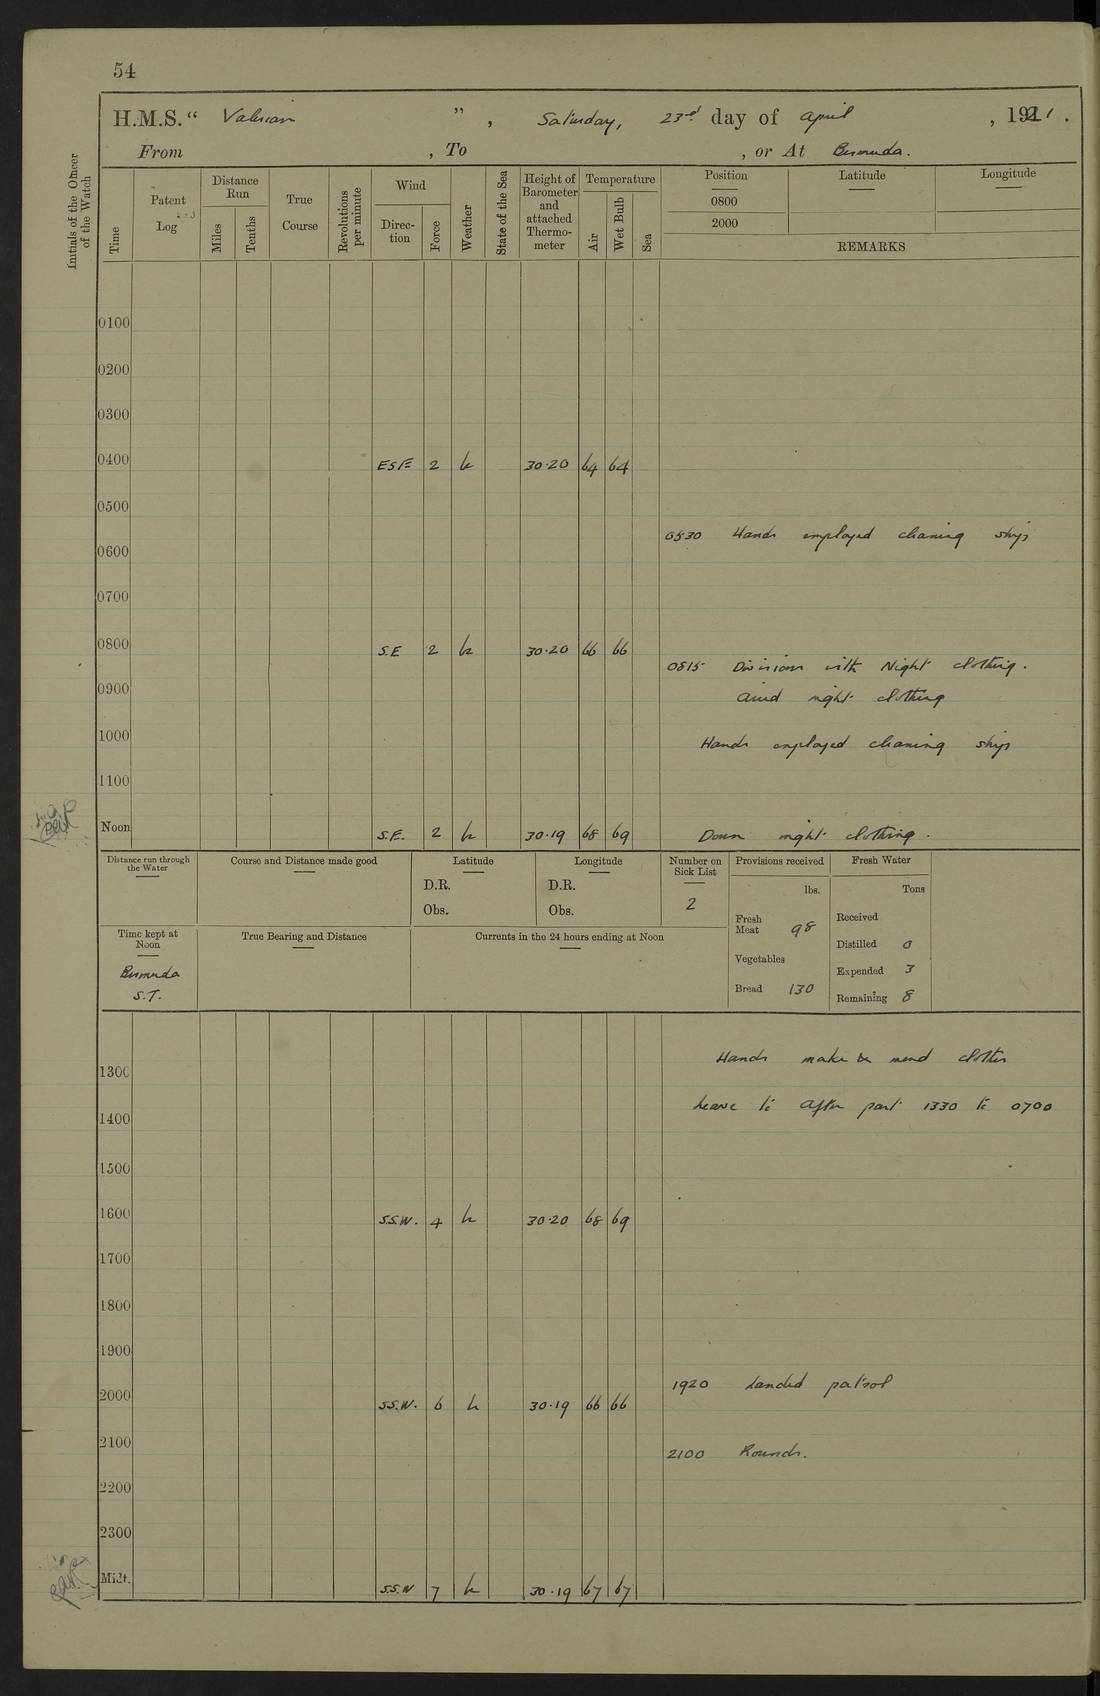 54
H.M.S. “ Valerian ” , Saturday, 23rd day of April , 1921 .
From , To , or At Bermuda.
Initials of the Officer of the Watch
Time
Patent Log
Distance Run
Miles
Tenths
True Course
Revolutions per minute
Wind
Direction
Force
Weather
State of the Sea
Height of Barometer and attached Thermometer
Temperature
Air
Wet Bulb
Sea
Position
0800
2000
Latitude
Longitude
REMARKS
0100
0200
0300
0400 ESE 2 30·20 64 64
0500
0530 Hands employed cleaning ship
0600
0700
0800 S.E 2 30·20 66 66
0815 Divisions with Night clothing.
0900
Aired night clothing
1000 Hands employed cleaning ship
1100
Noon S.E. 2 30·19 68 69 Down night clothing.
Distance run through the Water
Course and Distance made good
Latitude
D.R.
Obs.
Longitude
D.R.
Obs.
Number on Sick List
2
Provisions received
lbs.
Fresh Meat 98
Vegetables
Bread 130
Fresh Water
Tons
Received
Distilled 0
Expended 3
Remaining 8
Time kept at Noon
Bermuda
S.T.
True Bearing and Distance
Currents in the 24 hours ending at Noon
Hands make & mend clothes
1300
Leave to after part 1330 to 0700
1400
1500
1600 S.S.W. 4 30·20 68 69
1700
1800
1900
1920 Landed patrol
2000 S.S.W. 6 30·19 66 66
2100 2100 Rounds.
2200
2300
Midt. S.S.W 7 30·19 67 67